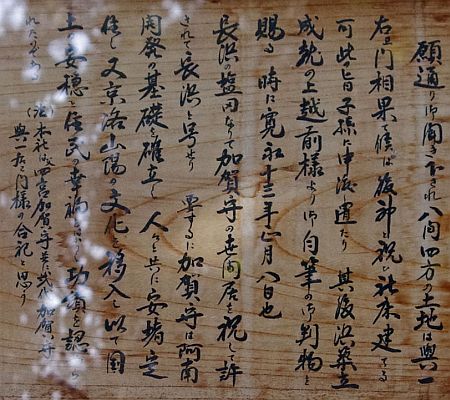 願通り御聞き下され八間四方の土地は與一
右衛門相果て候はば後神と祝ひ社床建てる
可此旨子孫に申渡置たり 其後浜築立
成就の上越前様より御自筆の御判物を
賜る 時に寛永十三年正月八日也
長浜の塩田なりて加賀守の長間居を祝して許
されて長浜と号せり 要するに加賀守は阿南
開発の基礎を確立て 人々と共に安堵定
住し 又京洛山陽の文化を移入し以て国
土安穏と住民の幸福 功績を認
れたる
本社は 四宮加賀守 弐代加賀守
與一右衛門様の合祀と思う